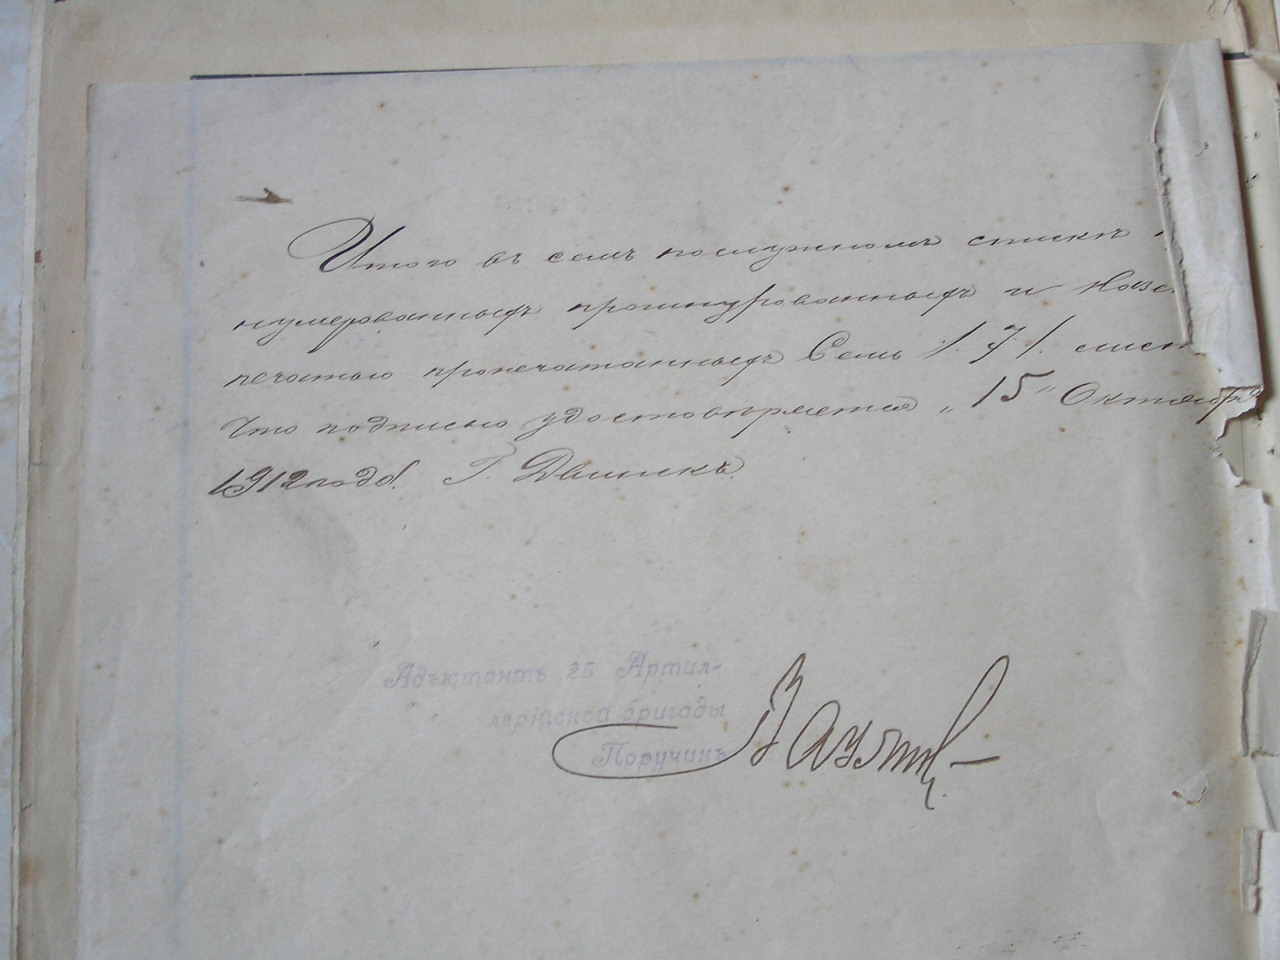 Итого въ семъ послужномъ спискѣ
нумерованныхъ прошнурованныхъ и казе
печатью пропечатанныхъ Семь /.7/. лист
Что подписью удостовѣряется „15" Октября
1912 года. Г. Двинскъ.
Адъютантъ 25 Артил-
лерійской бригады
Поручикъ